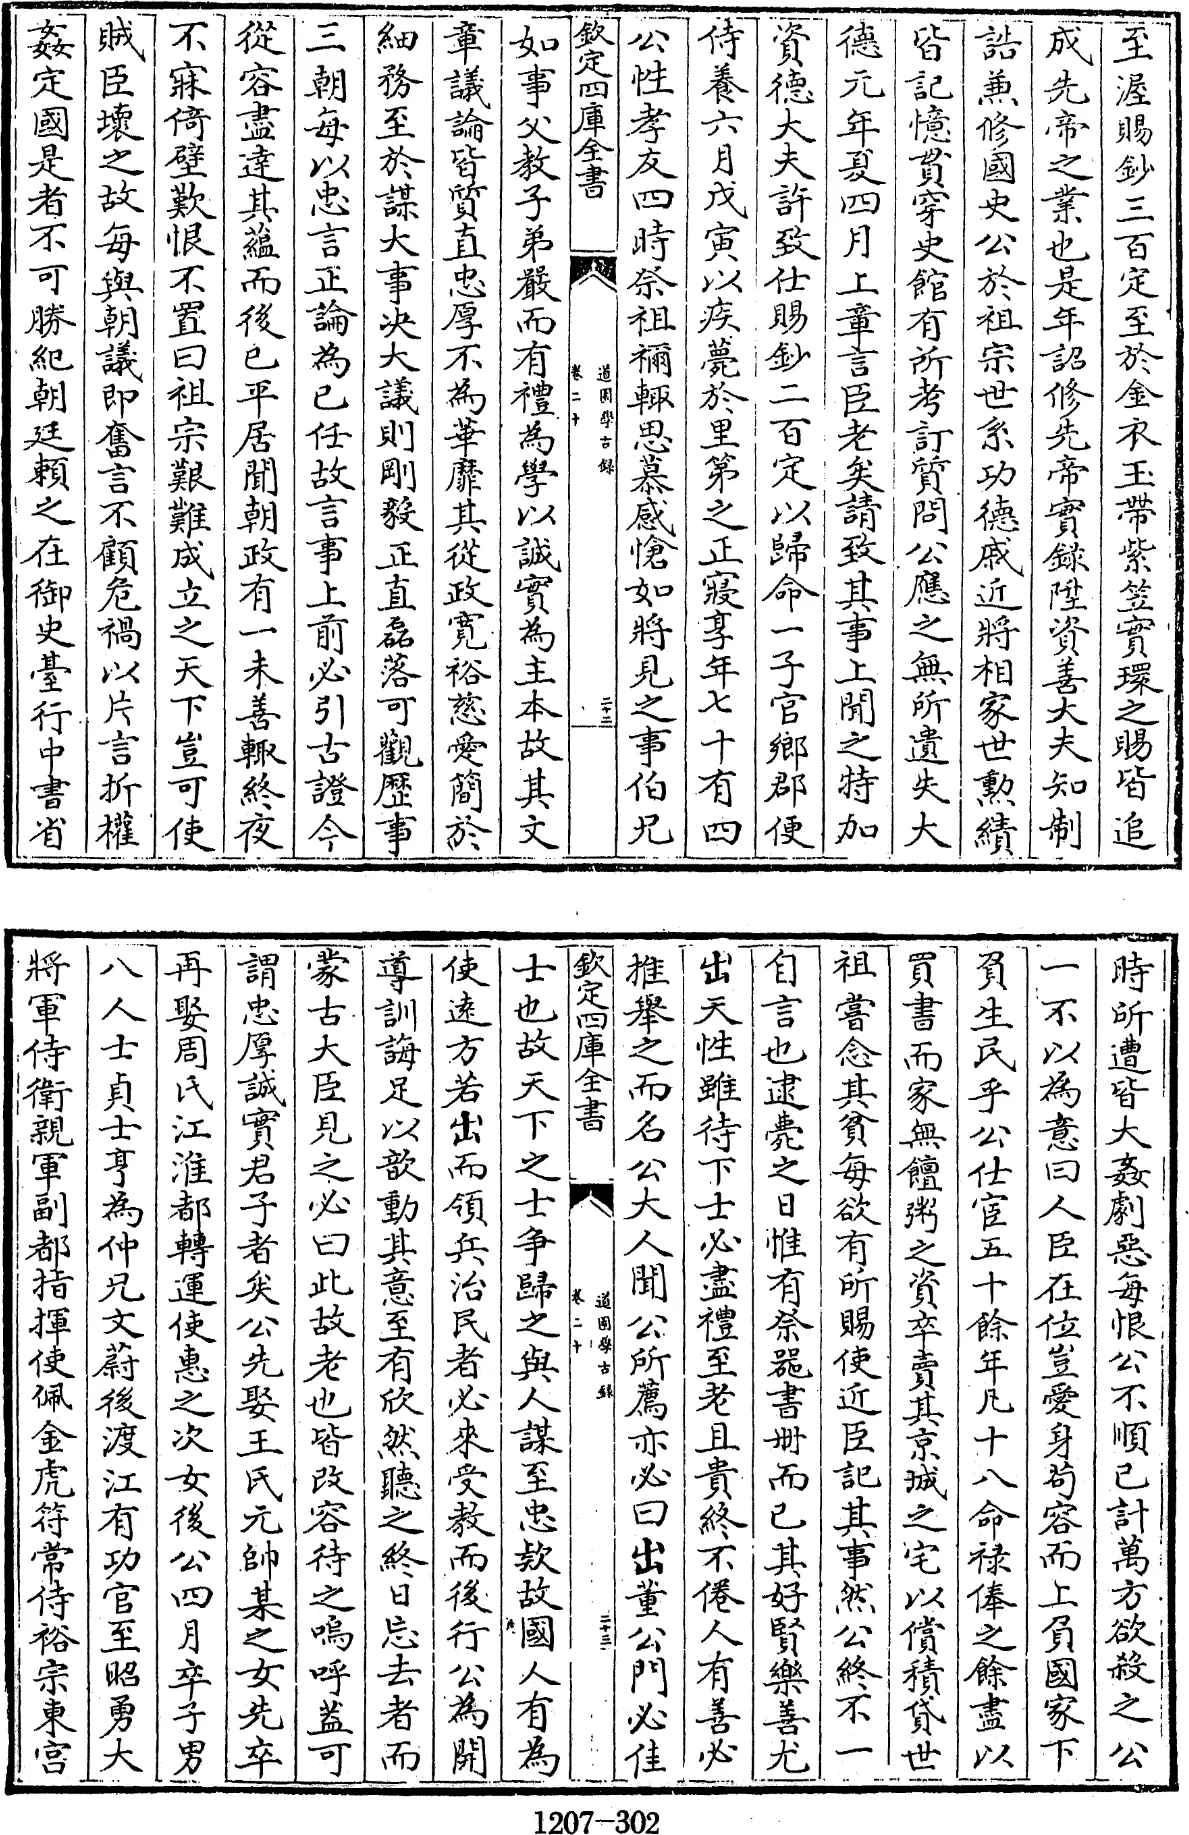 至渥賜鈔三百定至於金衣玉帶紫笠寳環之賜皆追
成先帝之業也是年詔修先帝實録陞資善大夫知制
誥兼修國史公於祖宗世系功德戚近將相家世勲績
皆記憶貫穿史館有所考訂質問公應之無所遺失大
德元年夏四月上章言臣老矣請致其事上聞之特加
資德大夫許致仕賜鈔二百定以歸命一子官鄉郡便
侍養六月戊寅以疾薨於里第之正寢享年七十有四
公性孝友四時祭祖禰輒思慕感愴如將見之事伯兄
欽定四庫全書
道園學古録
卷二十
二十二
如事父教子弟嚴而有禮為學以誠實為主本故其文
章議論皆質直忠厚不為華靡其從政寛裕慈愛簡於
細務至於謀大事决大議則剛毅正直磊落可觀歷事
三朝每以忠言正論為已任故言事上前必引古證今
從容盡達其蘊而後已平居聞朝政有一未善輒終夜
不寐倚壁歎恨不置曰祖宗艱難成立之天下豈可使
賊臣壞之故每與朝議即奮言不顧危禍以片言折權
姦定國是者不可勝紀朝廷頼之在御史臺行中書省
時所遭皆大姦劇惡每恨公不順已計萬方欲殺之公
一不以為意曰人臣在位豈愛身茍容而上負國家下
負生民乎公仕宦五十餘年凡十八命禄俸之餘盡以
買書而家無饘粥之資卒賣其京城之宅以償積貸世
祖嘗念其貧每欲有所賜使近臣記其事然公終不一
自言也逮薨之日惟有祭器書冊而已其好賢樂善尤
出天性雖待下士必盡禮至老且貴終不倦人有善必
推舉之而名公大人聞公所薦亦必曰出董公門必佳
欽定四庫全書
道園學古録
卷二十
二十三
士也故天下之士争歸之與人謀至忠欵故國人有為
使逺方若出而領兵治民者必來受教而後行公為開
導訓誨足以歆動其意至有欣然聽之終日忘去者而
蒙古大臣見之必曰此故老也皆改容待之嗚呼葢可
謂忠厚誠實君子者矣公先娶王氏元帥某之女先卒
再娶周氏江淮都轉運使惠之次女後公四月卒子男
八人士貞士亨為仲兄文蔚後渡江有功官至昭勇大
將軍侍衛親軍副都指揮使佩金虎符常侍裕宗東宫
1207-302